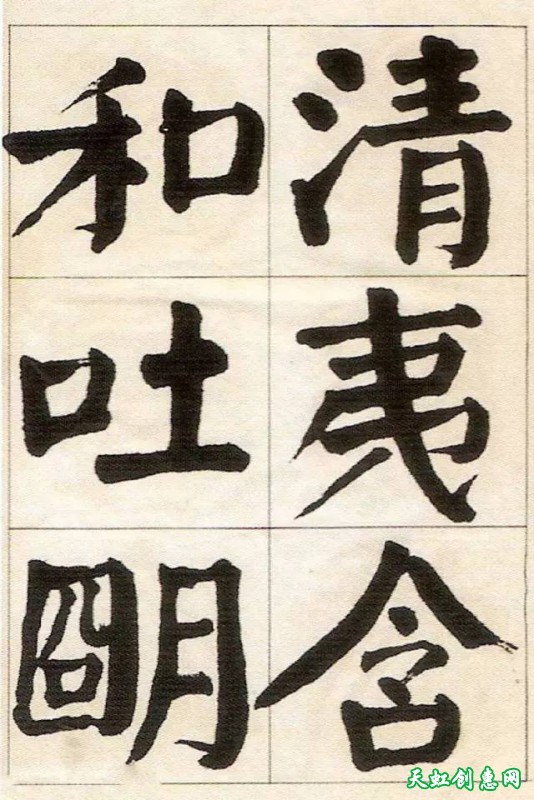 清夷含
和吐朙
天虹创惠网